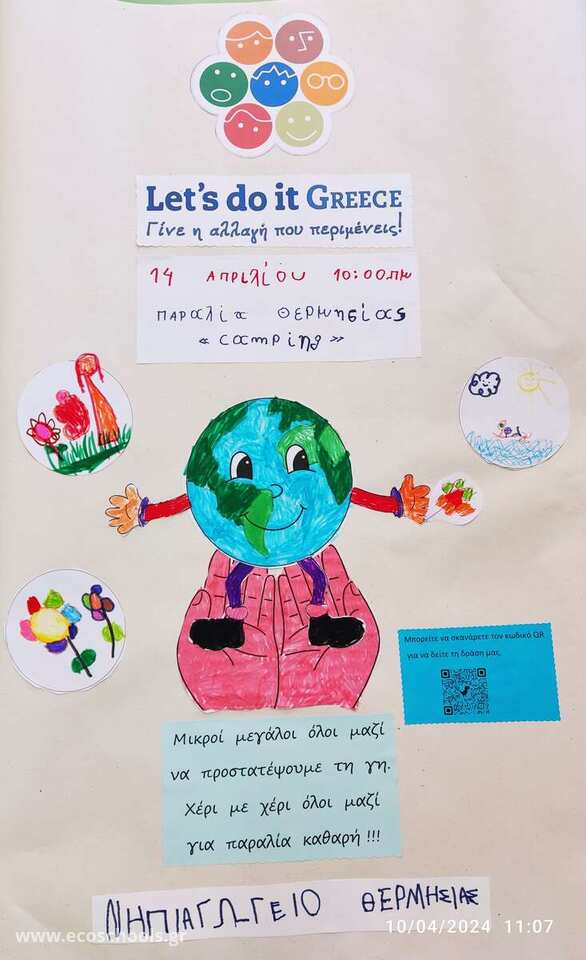 Let's do it GREECE
Γίνε η αλλαγή που περιμένεις!
14 ΑΠΡΙΛΙΟΥ 10:00πμ
ΠΑΡΑΛΙΑ ΘΕΡΜΗΣΙΑΣ
« camping »
Μπορείτε να σκανάρετε τον κωδικό QR
για να δείτε τη δράση μας.
Μικροί μεγάλοι όλοι μαζί
να προστατέψουμε τη γη.
Χέρι με χέρι όλοι μαζί
για παραλία καθαρή !!!
ΝΗΠΙΑΓΩΓΕΙΟ ΘΕΡΜΗΣΙΑΣ
www.ecoschools.gr
10/04/2024 11:07